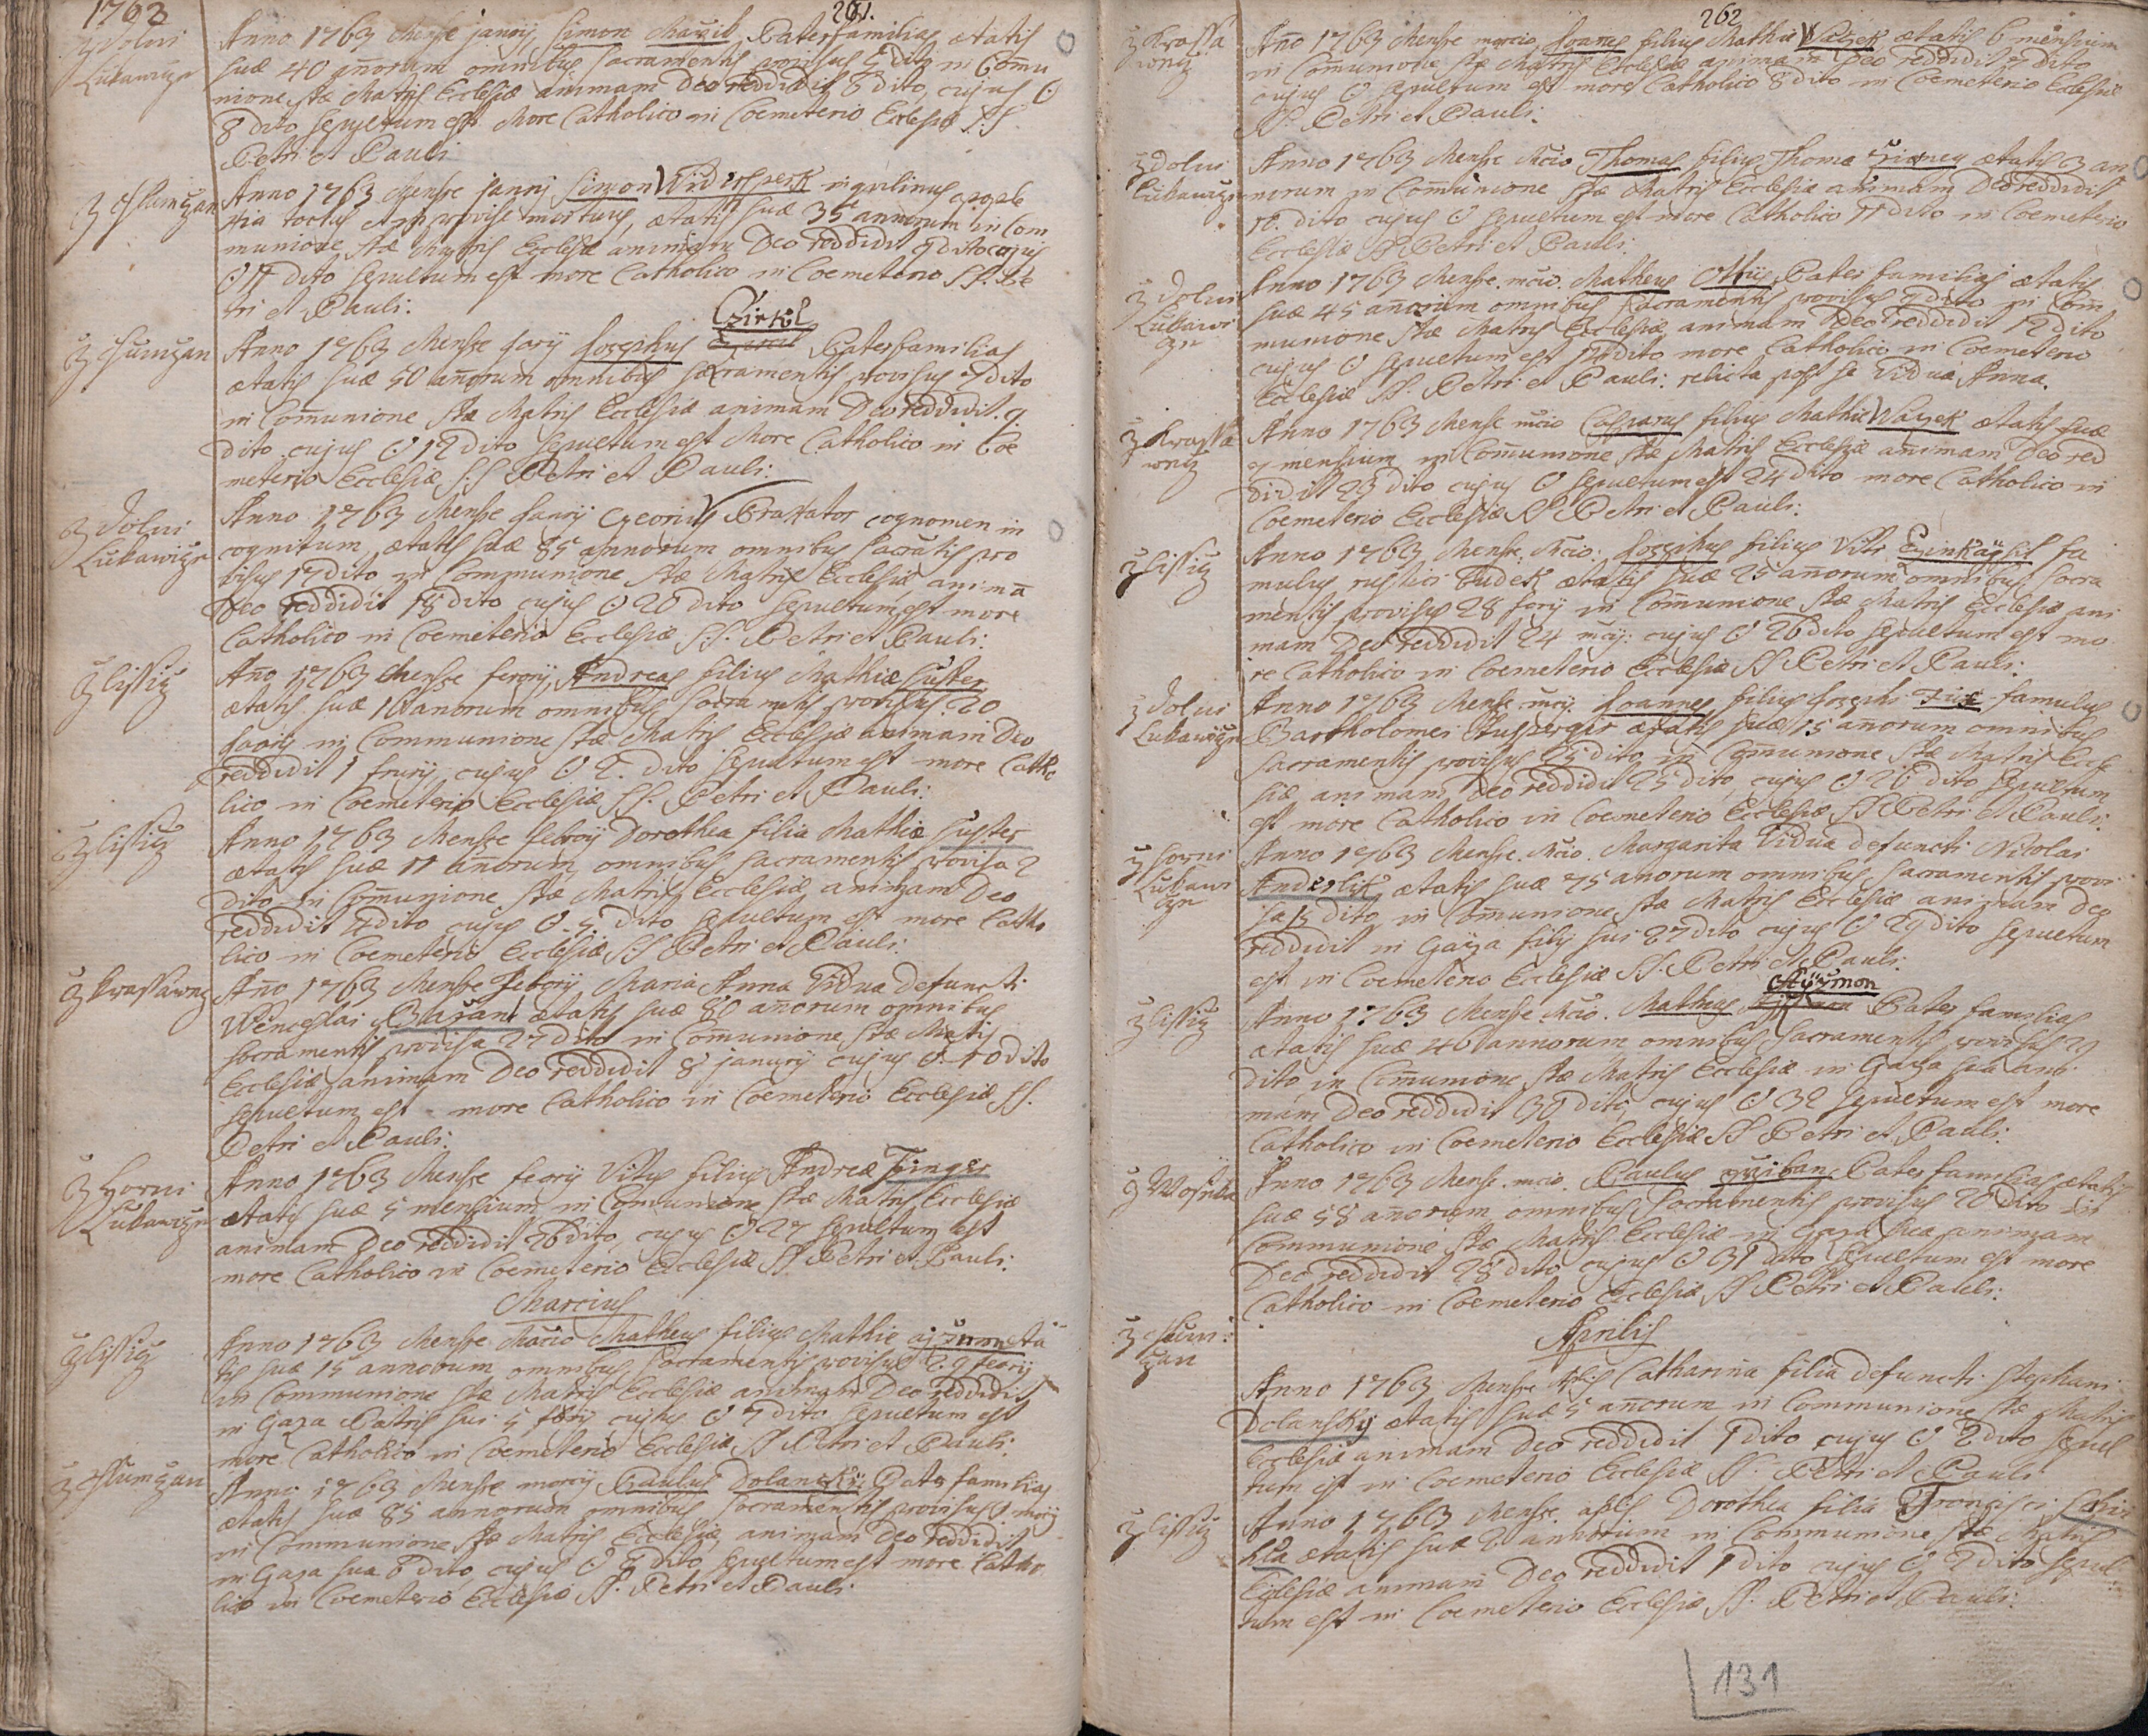 1763
261.
z Dolni
Lukawize
Anno 1763 Mense januy, Simon Paterfamilias ætatis
suæ 40 añorum omnibus sacramentis provisus 5 dito in Comu
nione stæ Matris Ecclesiæ animam Deo reddidit 6 dito, cujus C
8 dito sepultum est More Catholico in Coemeterio Ecclesiæ S:S
Petri et Pauli
z
Anno 1763 Mense janry Simon Widersperk inquilinus apople
xia tactus et improvise mortuus, ætatis suæ 35 annorum in Com
munione stæ Matris Ecclesiæ animam Deo reddidit 9 dito cujus
C 11 dito sepultum est more Catholico in Coemeterio SS. Pe
tri et Pauli:
Czirkl
z
Anno 1763 Mense Josephus Paterfamilias
ætatis suæ 50 añorum omnibus sacramentis provisus 7 dito
in Comunione stæ Matris Ecclesiæ animam Deo reddidit 9
dito cujus C 12 dito sepultum est More Catholico in Coe
meterio Ecclesiæ S:S Petri et Pauli:
z Dolni
Lukawize
Anno 1763 Mense Georius Braxator cognomen in
cognitum, ætatis suæ 85 annorum omnibus sacratis pro
visus 17 dito in Communione stæ Matris Ecclesiæ animã
Deo reddidit 18 dito cujus C 20 dito sepultum est more
Catholico in Coemeterio Ecclesiæ S:S. Petri et Pauli:
z Lissiz
Año 1763 Mense Andreas filius Mathiæ Suster
ætatis suæ 16 anorum omnibus sacramentis provisus 20
in Communione stæ Matris Ecclesiæ animam Deo
reddidit 1 cujus C 2. dito sepultum est more Catho
lico in Coemeterio Ecclesiæ SS. Petri et Pauli:
z Lissiz
Anno 1763 Mense Dorothea filia Mathiæ Suster
ætatis suæ 11 añorum omnibus sacramentis provisa 2
dito in Comunione stæ Matris Ecclesiæ animam Deo
reddidit 4 dito cujus C. 5 dito sepultum est more Catho
lico in Coemeterio Ecclesiæ SS Petri et Pauli:
z Krassawez
Año 1763 Mense Maria Anna Vidua defuncti
Wenceslai ætatis suæ 80 añorum omnibus
sacramentis provisa 27 dito in Comunione stæ Matis
Ecclesiæ animam Deo reddidit 8 januarij cujus C. 10 dito
sepultum est more Catholico in Coemeterio Ecclesiæ SS.
Petri et Pauli:
z Horni
Lukawize
Anno 1763 Mense Vitus filius Andreæ
ætatis suæ 5 mensium in Comunione stæ Matris Ecclesiæ
animam Deo reddidit 26 dito, cujus C 27 sepultum est
more Catholico in Coemeterio Ecclesiæ SS Petri et Pauli:
Marcius
z Lissiz
Anno 1763 Mense Marcio Matheus filius Mathie æta
tis suæ 15 annorum omnibus Sacramentis provisus
in Communione stæ Matris Ecclesiæ animam Deo reddidit
in Gaza Patris sui 5 cujus C 7 dito sepultum est
more Catholico in Coemeterio Ecclesiæ SS Petri et Pauli:
z
Anno 1763 Mense Paulus Dolansky Pater familias
ætatis suæ 85 annorum omnibus sacramentis provisus
in Communione stæ Matris Ecclesiæ animam Deo reddidit
in Gaza sua 6 dito, cujus C 8 dito sepultum est more Catho
lico in Coemeterio Ecclesiæ SS. Petri et Pauli
262
z Krassa
wez
Año 1763 Mense marcio filius Mathiæ ætatis 6 mensium
in Comunione stæ Matris Ecclesiæ animam Deo reddidit 7 dito
cujus C sepultum est more Catholico 8 dito in Coemeterio Ecclesiæ
SS. Petri et Pauli.
z Dolni
Lukawize
Anno 1763 Mense Mcio Thomas filius Thomæ ætatis 3 an
norum in Comunione stæ Matris Ecclesiæ animam Deo reddidit
10. dito cujus C sepultum est more Catholico 11 dito in Coemeterio
Ecclesiæ SS Petri et Pauli:
z Dolni
Lukawi
ze
Anno 1763 Mense mcio. Matheus Pater familias ætatis
suæ 45 añorum omnibus Sacramentis provisus 7 dito in Com
munione stæ Matris Ecclesiæ animam Deo reddidit 12 dito
cujus C sepultum est 14 dito more Catholico in Coemeterio
Ecclesiæ SS. Petri et Pauli: relicta post se Vidua Anna.
z Krassa
wez
Anno 1763 Mense mcio Casparus filius Mathiæ ætatis suæ
7 mensium in Comunione stæ Matris Ecclesiæ animam Deo red
didit 23 dito cujus C sepultum est 24 dito more Catholico in
Coemeterio Ecclesiæ SS Petri et Pauli:
z Lissiz
Anno 1763 Mense. Mcio: Josephus filius Viti fa
mulus rustici Dudek ætatis suæ 25 añorum omnibus sacra
mentis provisus 28 in Comunione stæ Matris Ecclesiæ ani
mam Deo reddidit 24 mcij: cujus C 26 dito sepultum est mo
re Catholico in Coemeterio Ecclesiæ SS Petri et Pauli:
z Dolni
Lukawize
Anno 1763 Mense mcij. Joannes filius Josephi famulus
Bartholomei ætatis suæ 15 añorum omnibus
sacramentis provisus 25 dito, in Comunione stæ Matris Eccle
siæ animam Deo reddidit 25 dito, cujus C 26 dito sepultum
est more Catholico in Coemeterio Ecclesiæ SS Petri et Pauli:
z Horni
Lukawi
ze
Anno 1763 Mense. Mcio. Margarita Vidua defuncti Nicolai
Anderlik ætatis suæ 75 añorum omnibus sacramentis provi
sa 15 dito in Comunione stæ Matris Ecclesiæ animam Deo
reddidit in Gaza filij sui 27 dito cujus C 29 dito sepultum
est in Coemeterio Ecclesiæ SS. Petri et Pauli:
z Lissiz
Anno 1763 Mense Mcio. Matheus Pater familias
ætatis suæ 46 annorum omnibus sacramentis provisus
dito in Comunione stæ Matris Ecclesiæ in Gaza sua ani
mam Deo reddidit 30 dito, cujus C 32 sepultum est more
Catholico in Coemeterio Ecclesiæ SS Petri et Pauli:
z
Anno 1763 Mense. mcio. Paulus Pater familias ætatis
suæ 58 añorum omnibus sacramentis provisus 20 dito in
Communione stæ Matris Ecclesiæ in Gaza sua animam
Deo reddidit 28 dito cujus C 31 dito sepultum est more
Catholico in Coemeterio Ecclesiæ SS Petri et Pauli:
Aprilis
z
Anno 1763 Mense Aplis Catharina filia defuncti Stephani
Dolansky ætatis suæ 5 añorum in Communione stæ Matris
Ecclesiæ animam Deo reddidit 1 dito cujus C 2 dito sepul
tum est in Coemeterio Ecclesiæ SS. Petri et Pauli
z Lissiz
Anno 1763 Mense. aplis Dorothea filia Francisci
ætatis suæ 2 annorum in Communione stæ Matris
Eclesiæ animam Deo reddidit 1 dito cujus C 2 dito sepul
tum est in Coemeterio Ecclesiæ SS. Petri et Pauli:
131